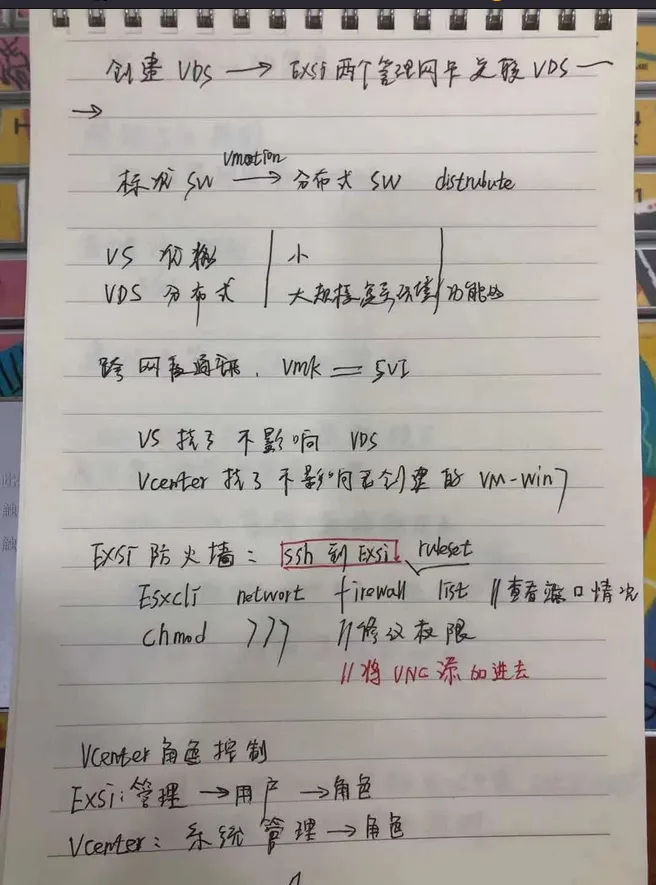 创建 VDS → EXSi 两个管理网卡关联 VDS —
→
标准 SW vmotion → 分布式 SW distrubute
VS 价格 | 小 |
VDS 分布式 | 大规模复杂环境 | 功能
跨网段通讯. vmk = SVI
VS 挂了不影响 VDS
Vcenter 挂了不影响已创建的 VM-win7
EXSi 防火墙: ssh 到 EXSi ruleset
Esxcli networt firewall list // 查看端口情况
chmod 777 // 修改权限
// 将 VNC 添加进去
Vcenter 角色控制
Exsi: 管理 → 用户 → 角色
Vcenter: 系统管理 → 角色